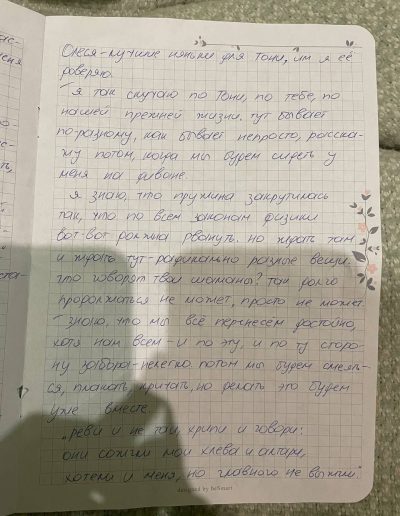 Олеся - лучшие няньки для Тони, им я её
доверяю.
я так скучаю по Тони, по тебе, по
нашей прежней жизни. тут бывает
по-разному, как бывает непросто, расска-
жу потом, когда мы будем сидеть у
меня на диване.
я знаю, что пружина закрутилась
так, что по всем законам физики
вот-вот должна рвануть. но ждать там
и ждать тут - радикально разные вещи.
что говорят твои шаманы? так долго
продолжаться не может, просто не может.
знаю, что мы всё перенесём достойно,
хотя нам всем - и по эту, и по ту сторо-
ну забора - нелегко. потом мы будем смеять-
ся, плакать, кричать, но делать это будем
уже вместе.
"реви и не таи, хрипи и говори:
они сожгли мои хлева и алтари,
хотели и меня, но главного не выжгли."
designed by beSmart